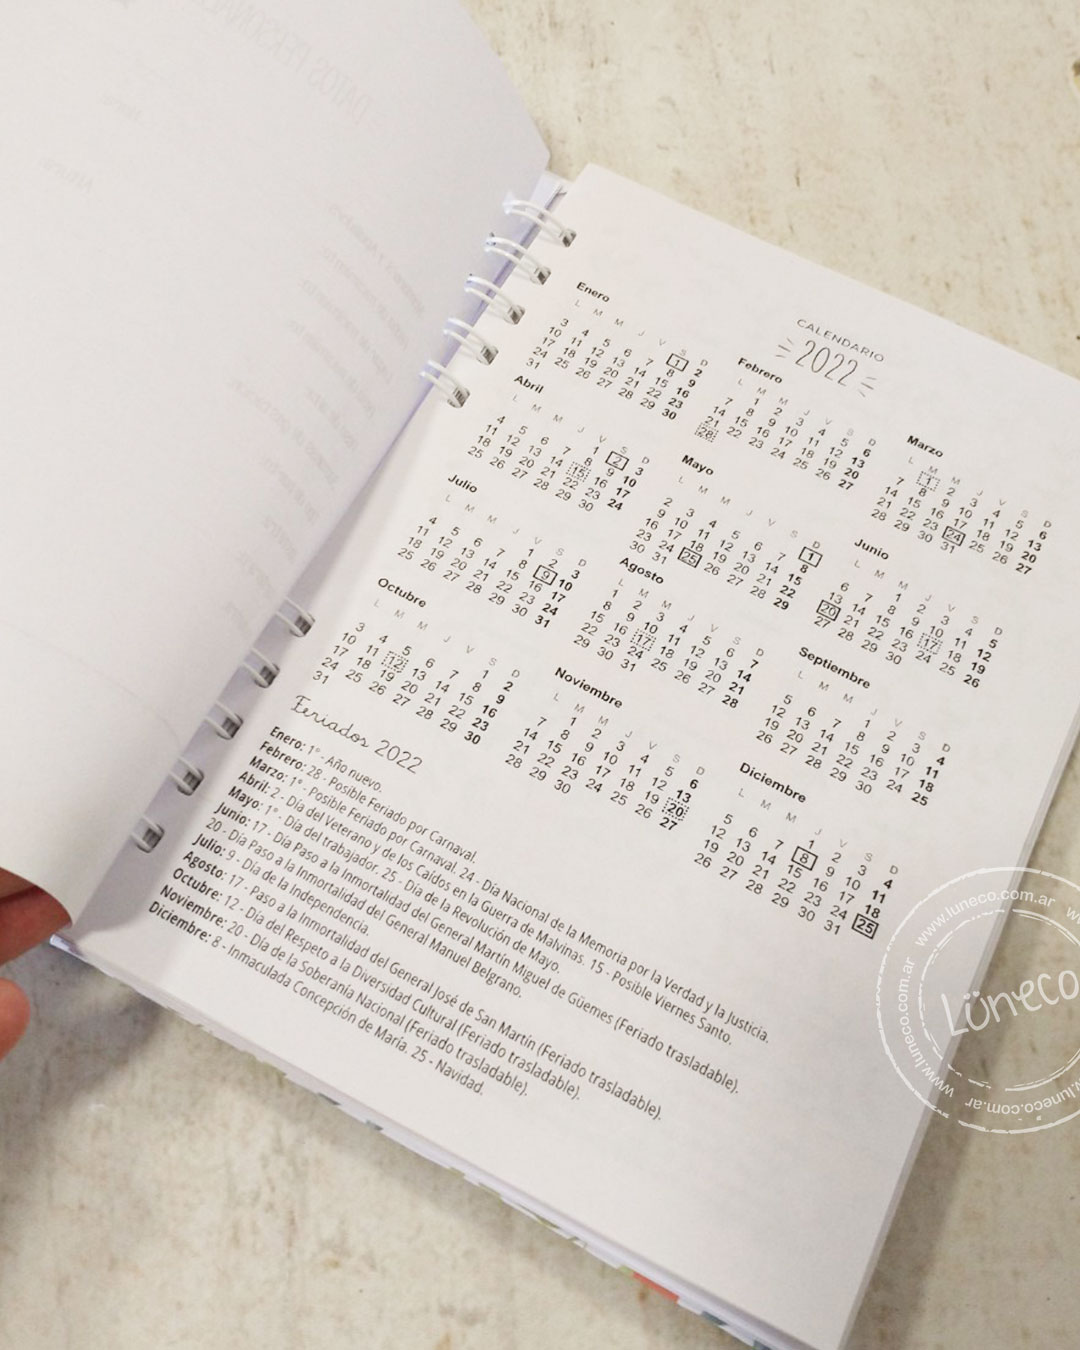 DATOS PERSONAL
CALENDARIO
2022
Enero
L M M J V S D
1 2
3 4 5 6 7 8 9
10 11 12 13 14 15 16
17 18 19 20 21 22 23
24 25 26 27 28 29 30
31
Febrero
L M M J V S D
1 2 3 4 5 6
7 8 9 10 11 12 13
14 15 16 17 18 19 20
21 22 23 24 25 26 27
28
Marzo
L M M J V S D
1 2 3 4 5 6
7 8 9 10 11 12 13
14 15 16 17 18 19 20
21 22 23 24 25 26 27
28 29 30 31
Abril
L M M J V S D
1 2 3
4 5 6 7 8 9 10
11 12 13 14 15 16 17
18 19 20 21 22 23 24
25 26 27 28 29 30
Mayo
L M M J V S D
1
2 3 4 5 6 7 8
9 10 11 12 13 14 15
16 17 18 19 20 21 22
23 24 25 26 27 28 29
30 31
Junio
L M M J V S D
1 2 3 4 5
6 7 8 9 10 11 12
13 14 15 16 17 18 19
20 21 22 23 24 25 26
27 28 29 30
Julio
L M M J V S D
1 2 3
4 5 6 7 8 9 10
11 12 13 14 15 16 17
18 19 20 21 22 23 24
25 26 27 28 29 30 31
Agosto
L M M J V S D
1 2 3 4 5 6 7
8 9 10 11 12 13 14
15 16 17 18 19 20 21
22 23 24 25 26 27 28
29 30 31
Septiembre
L M M J V S D
1 2 3 4
5 6 7 8 9 10 11
12 13 14 15 16 17 18
19 20 21 22 23 24 25
26 27 28 29 30
Octubre
L M M J V S D
1 2
3 4 5 6 7 8 9
10 11 12 13 14 15 16
17 18 19 20 21 22 23
24 25 26 27 28 29 30
31
Noviembre
L M M J V S D
1 2 3 4 5 6
7 8 9 10 11 12 13
14 15 16 17 18 19 20
21 22 23 24 25 26 27
28 29 30
Diciembre
L M M J V S D
1 2 3 4
5 6 7 8 9 10 11
12 13 14 15 16 17 18
19 20 21 22 23 24 25
26 27 28 29 30 31
Feriados 2022
Enero: 1° - Año nuevo.
Febrero: 28 - Posible Feriado por Carnaval.
Marzo: 1° - Posible Feriado por Carnaval. 24 - Día Nacional de la Memoria por la Verdad y la Justicia.
Abril: 2 - Día del Veterano y de los Caídos en la Guerra de Malvinas. 15 - Posible Viernes Santo.
Mayo: 1° - Día del trabajador. 25 - Día de la Revolución de Mayo.
Junio: 17 - Día Paso a la Inmortalidad del General Martín Miguel de Güemes (Feriado trasladable).
20 - Día Paso a la Inmortalidad del General Manuel Belgrano.
Julio: 9 - Día de la Independencia.
Agosto: 17 - Paso a la Inmortalidad del General José de San Martín (Feriado trasladable).
Octubre: 12 - Día del Respeto a la Diversidad Cultural (Feriado trasladable).
Noviembre: 20 - Día de la Soberanía Nacional (Feriado trasladable).
Diciembre: 8 - Inmaculada Concepción de María. 25 - Navidad.
www.luneco.com.ar
www.luneco.com.ar
www.luneco.com.ar
Lüneco